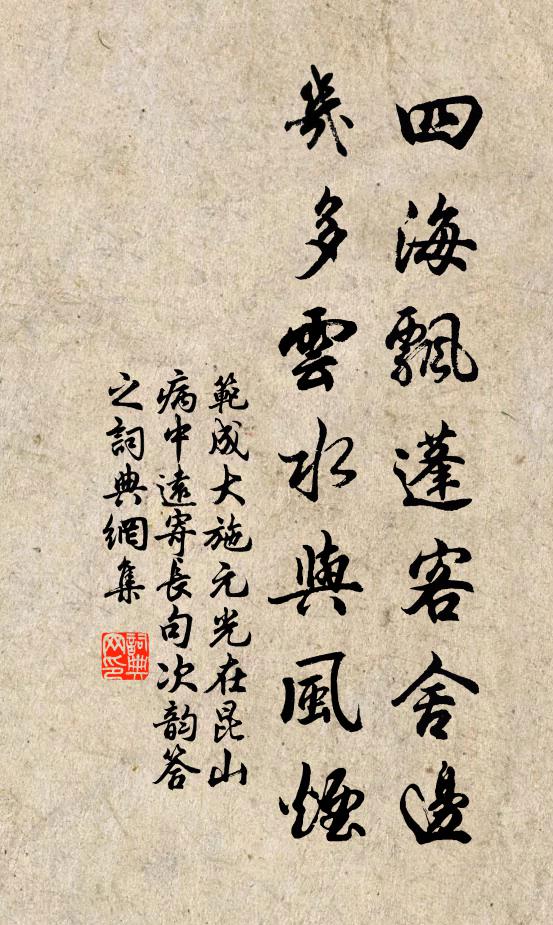 四海飄蓬客舍邊
幾多雲水與風煙
範成大施元光在昆山
病中遠寄長句次韵答
之詞典網集
詞典
网印